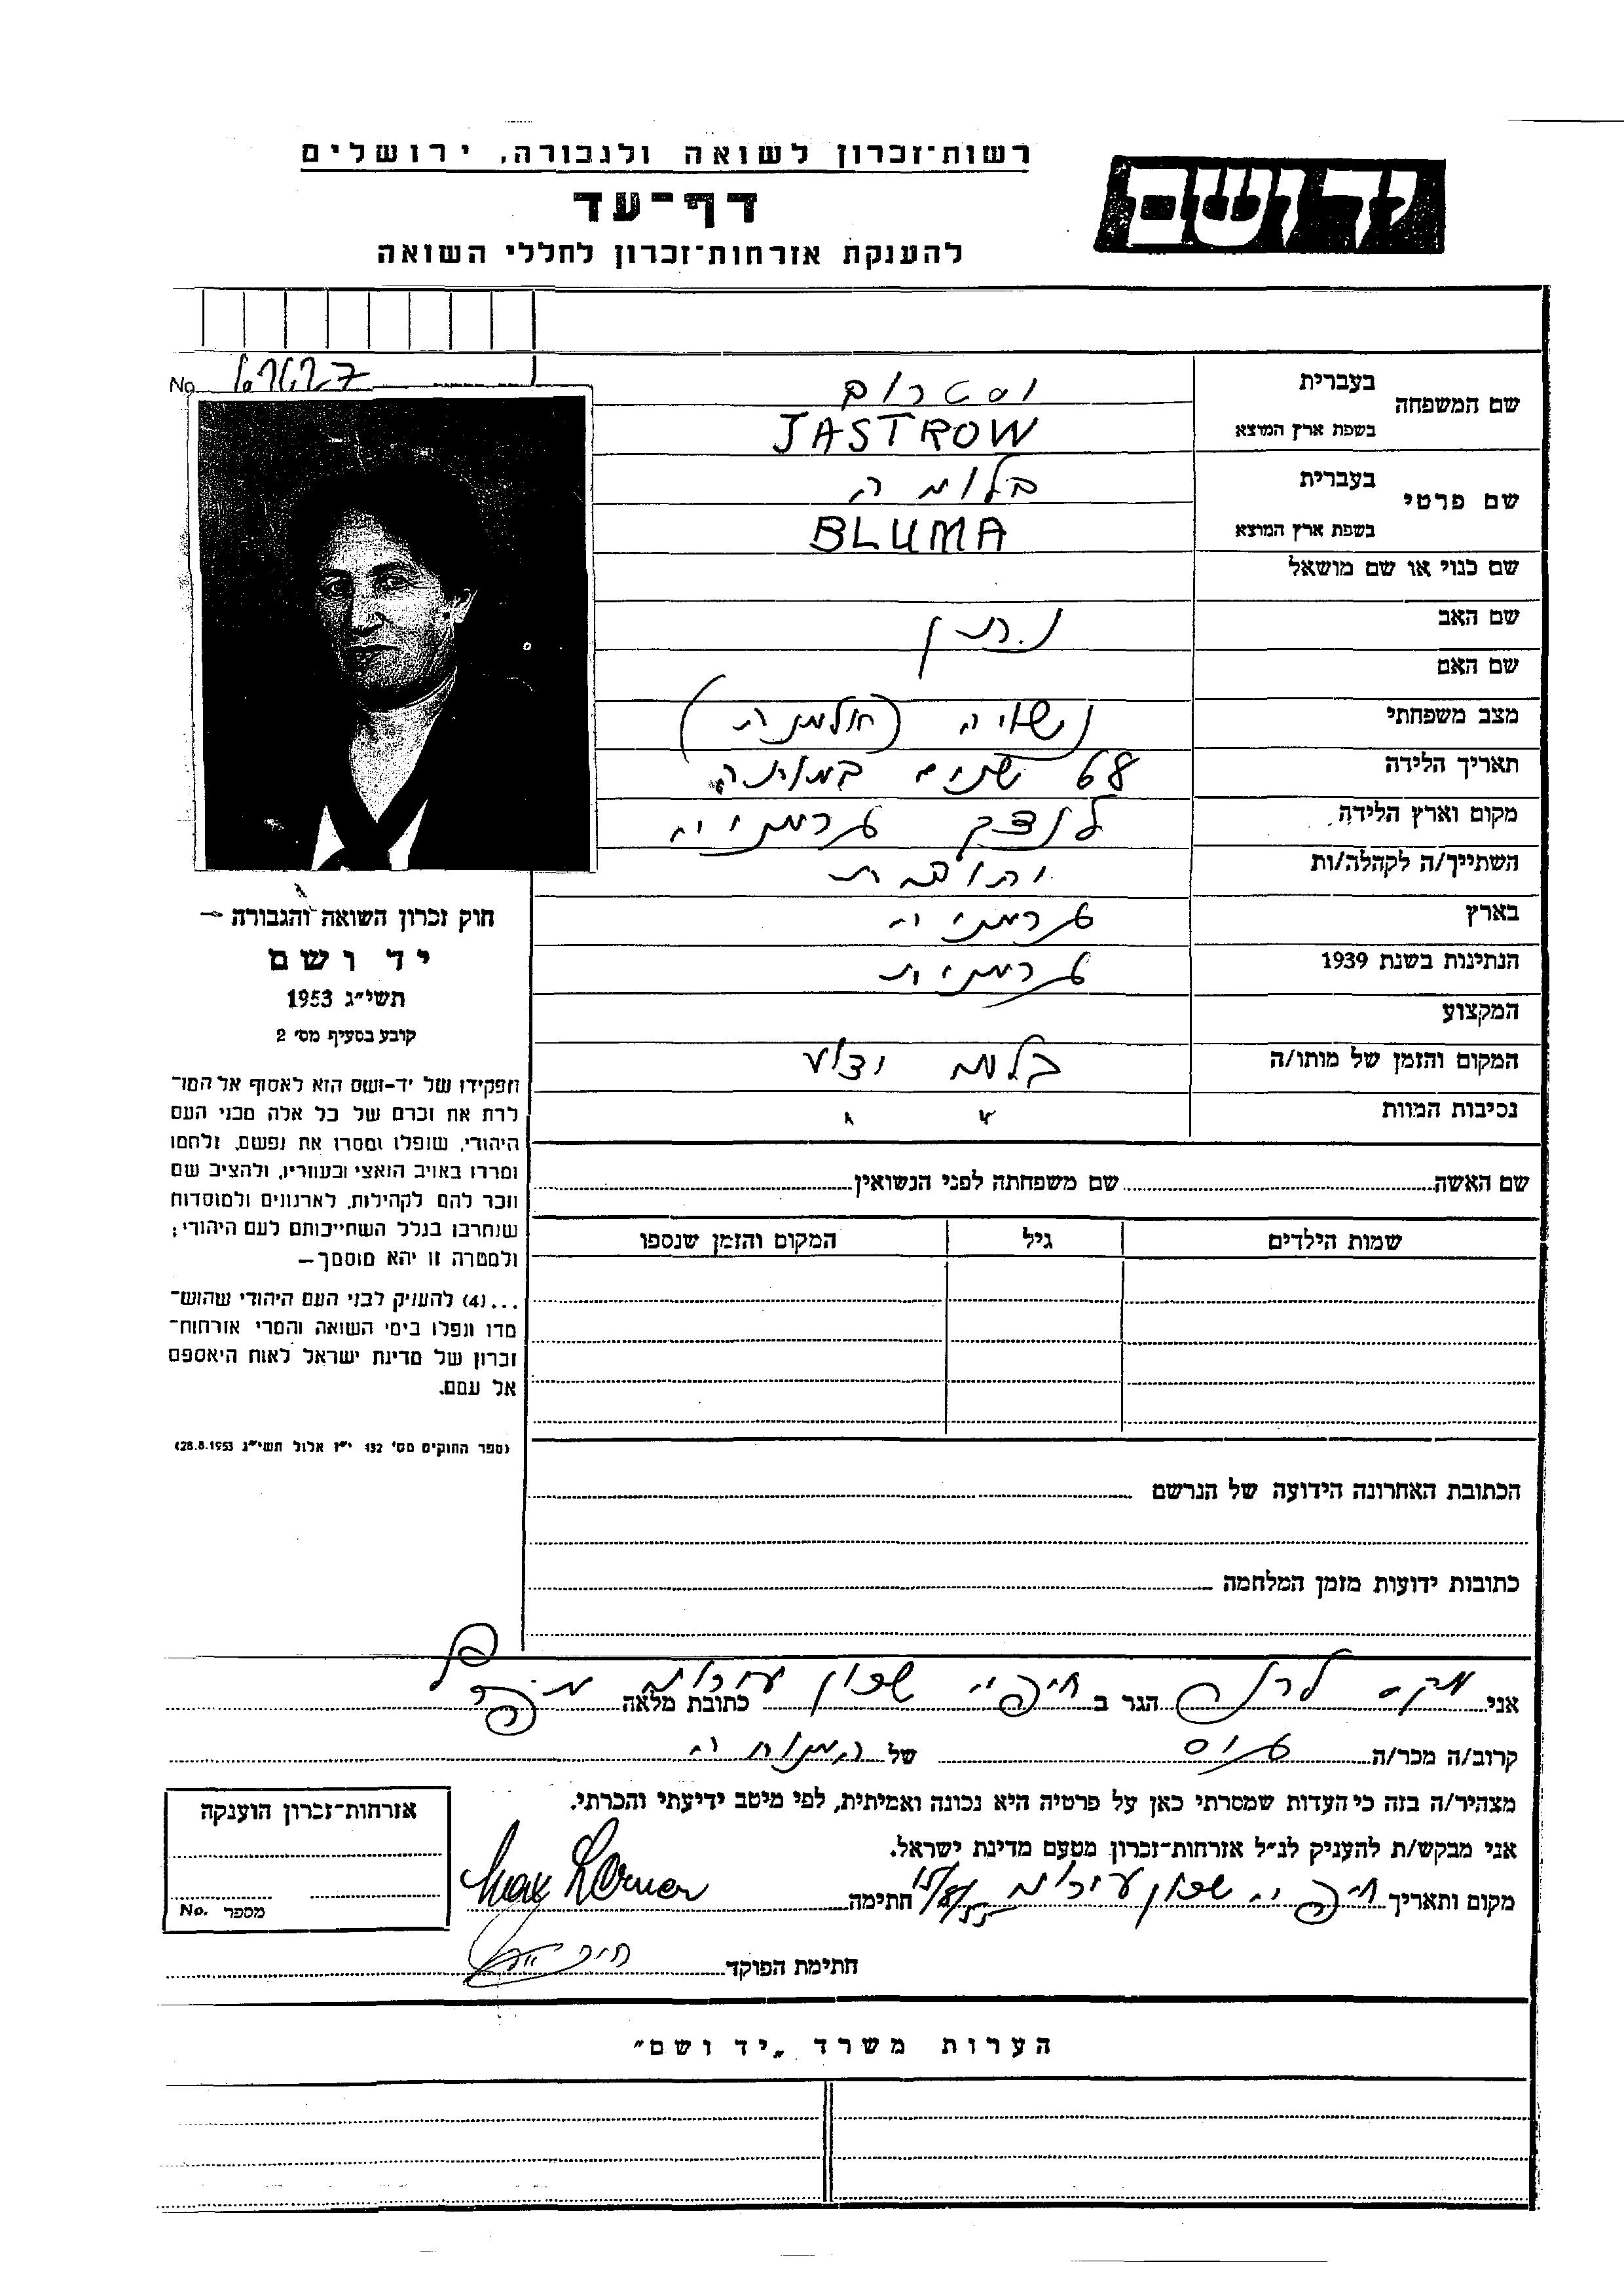 רשות־זכרון לשואה ולגבורה, ירושלים
יד ושם
דף־עד
להענקת אזרחות־זכרון לחללי השואה
No
שם המשפחה
בעברית
בשפת ארץ המוצא JASTROW
שם פרטי
בעברית בלומה
בשפת ארץ המוצא BLUMA
שם כנוי או שם מושאל
שם האב נתן
שם האם
מצב משפחתי נשואה (אלמנה)
תאריך הלידה 68 שנים במותה
מקום וארץ הלידה גרמניה
השתייך/ה לקהלה/ות
בארץ גרמניה
הנתינות בשנת 1939 גרמנית
המקצוע
המקום והזמן של מותו/ה בלתי ידוע
נסיבות המוות " "
שם האשה שם משפחתה לפני הנשואין
שמות הילדים גיל המקום והזמן שנספו
הכתובת האחרונה הידועה של הנרשם
כתובות ידועות מזמן המלחמה
חוק זכרון השואה והגבורה —
יד ושם
תשי״ג 1953
קובע בסעיף מס׳ 2
תפקידו של יד-ושם הוא לאסוף אל המו־
לדת את זכרם של כל אלה מבני העם
היהודי, שנפלו ומסרו את נפשם, נלחמו
ומרדו באויב הנאצי ובעוזריו, ולהציב שם
וזכר להם לקהילות, לארגונים ולמוסדות
שנחרבו בגלל השתייכותם לעם היהודי;
ולמטרה זו יהא מוסמך —
...(4) להעניק לבני העם היהודי שהוש־
מדו ונפלו בימי השואה והמרי אזרחות־
זכרון של מדינת ישראל לאות היאספם
אל עמם.
(ספר החוקים מס׳ 132 י״ז אלול תשי״ג 28.8.1953)
אני מקס לרנר הגר ב חיפה כתובת מלאה
קרוב/ה מכר/ה של המנוחה
מצהיר/ה בזה כי העדות שמסרתי כאן על פרטיה היא נכונה ואמיתית, לפי מיטב ידיעתי והכרתי.
אני מבקש/ת להעניק לנ״ל אזרחות־זכרון מטעם מדינת ישראל.
מקום ותאריך חיפה חתימה Max Lerner
חתימת הפוקד
אזרחות־זכרון הוענקה
מספר No.
הערות משרד „יד ושם״